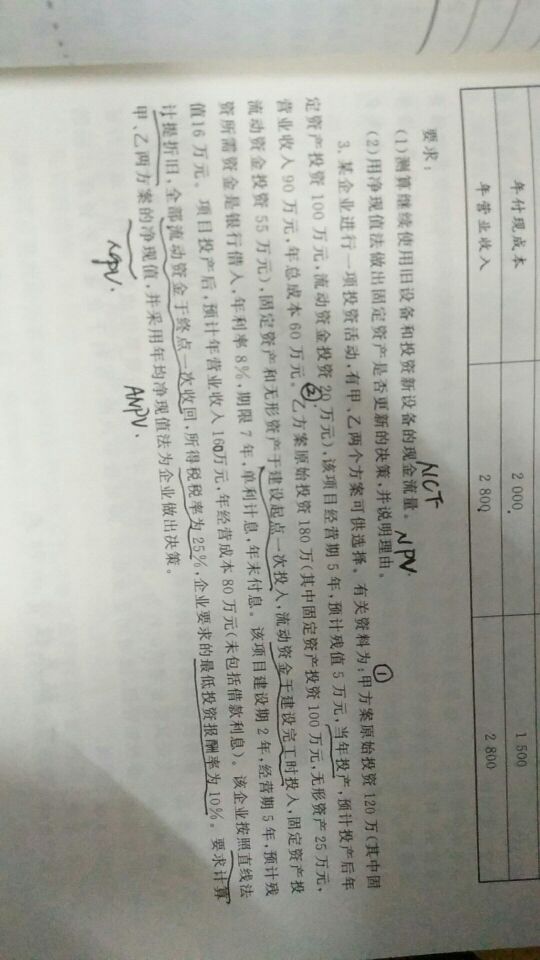 年付现成本 2 000 1 500
年营业收入 2 800 2 800
要求：
(1)测算继续使用旧设备和投资新设备的现金流量。 NCF
(2)用净现值法做出固定资产是否更新的决策，并说明理由。 NPV
3. 某企业进行一项投资活动，有甲、乙两个方案可供选择。有关资料为：甲方案原始投资 120 万(其中固
①
定资产投资 100 万元，流动资金投资 20 万元)，该项目经营期 5 年，预计残值 5 万元，当年投产，预计投产后年
营业收入 90 万元，年总成本 60 万元。乙方案原始投资 180 万(其中固定资产投资 100 万元，无形资产 25 万元，
②
流动资金投资 55 万元)，固定资产和无形资产于建设起点一次投入，流动资金于建设完工时投入，固定资产投
资所需资金是银行借入，年利率 8%，期限 7 年，单利计息，年末付息。该项目建设期 2 年，经营期 5 年，预计残
值 16 万元。项目投产后，预计年营业收入 160万元，年经营成本 80 万元(未包括借款利息)。该企业按照直线法
计提折旧，全部流动资金于终点一次收回，所得税税率为 25%，企业要求的最低投资报酬率为 10%。要求计算
甲、乙两方案的净现值，并采用年均净现值法为企业做出决策。
NPV.
ANPV.